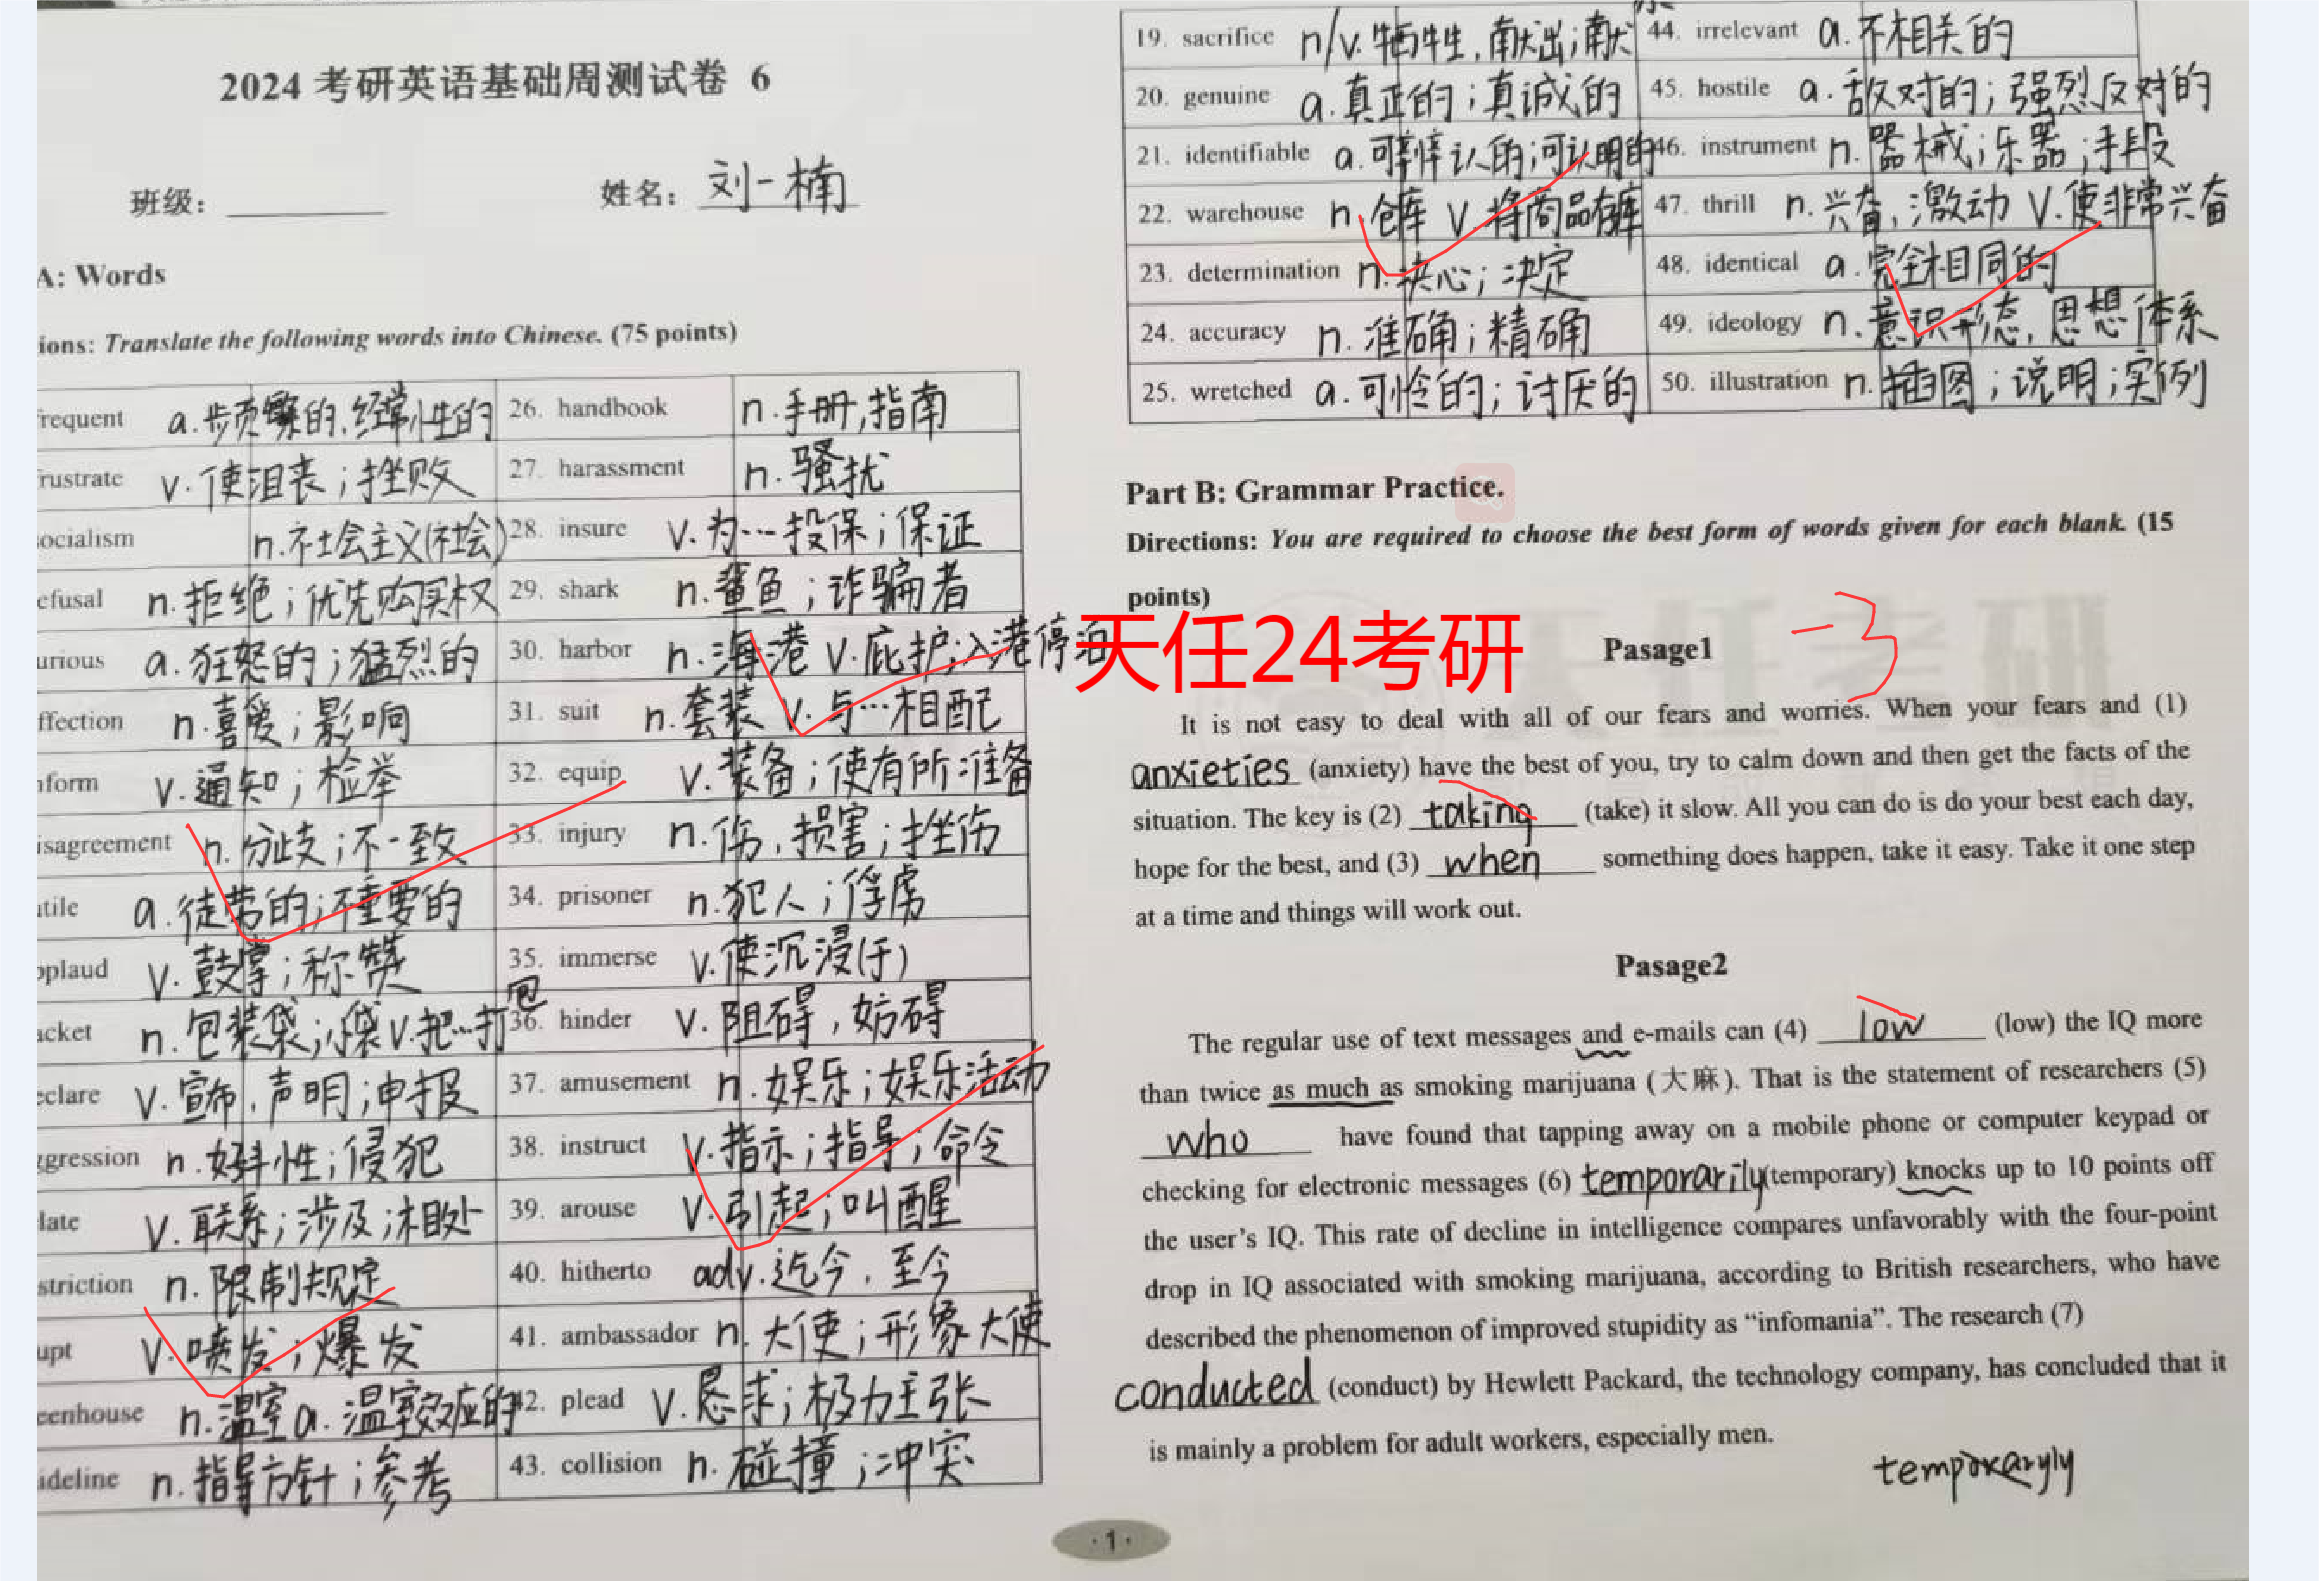 2024 考研英语基础周测试卷 6
班级： 姓名： 刘一楠
A: Words
ions: Translate the following words into Chinese. (75 points)
requent a.频繁的,经常性的 26. handbook n.手册,指南
rustrate v.使沮丧；挫败 27. harassment n.骚扰
ocialism n.社会主义(社会) 28. insure v.为…投保；保证
efusal n.拒绝；优先购买权 29. shark n.鲨鱼；诈骗者
urious a.狂怒的；猛烈的 30. harbor n.海港 v.庇护;入港停泊
ffection n.喜爱；影响 31. suit n.套装 v.与…相配
nform v.通知；检举 32. equip v.装备；使有所准备
isagreement n.分歧；不一致 33. injury n.伤,损害；挫伤
utile a.徒劳的；不重要的 34. prisoner n.犯人；俘虏
pplaud v.鼓掌；称赞 35. immerse v.使沉浸(于)
acket n.包装袋;小袋 v.把…打包 36. hinder v.阻碍,妨碍
eclare v.宣布,声明;申报 37. amusement n.娱乐；娱乐活动
ggression n.好斗性;侵犯 38. instruct v.指示；指导；命令
late v.联系;涉及;相处 39. arouse v.引起;叫醒
striction n.限制规定 40. hitherto adv.迄今,至今
upt v.喷发；爆发 41. ambassador n.大使；形象大使
eenhouse n.温室 a.温室效应的 42. plead v.恳求；极力主张
ideline n.指导方针；参考 43. collision n.碰撞；冲突
19. sacrifice n/v.牺牲,献出;献 44. irrelevant a.不相关的
20. genuine a.真正的；真诚的 45. hostile a.敌对的；强烈反对的
21. identifiable a.可辨认的;可认明的 46. instrument n.器械;乐器;手段
22. warehouse n.仓库 v.将商品存库 47. thrill n.兴奋,激动 v.使非常兴奋
23. determination n.决心；决定 48. identical a.完全相同的
24. accuracy n.准确；精确 49. ideology n.意识形态,思想体系
25. wretched a.可怜的；讨厌的 50. illustration n.插图；说明;实例
Part B: Grammar Practice.
Directions: You are required to choose the best form of words given for each blank. (15
points)
天任24考研
Pasage1 -3
It is not easy to deal with all of our fears and worries. When your fears and (1)
anxieties (anxiety) have the best of you, try to calm down and then get the facts of the
situation. The key is (2) taking (take) it slow. All you can do is do your best each day,
hope for the best, and (3) when something does happen, take it easy. Take it one step
at a time and things will work out.
Pasage2
The regular use of text messages and e-mails can (4) low (low) the IQ more
than twice as much as smoking marijuana (大麻). That is the statement of researchers (5)
who have found that tapping away on a mobile phone or computer keypad or
checking for electronic messages (6) temporarily (temporary) knocks up to 10 points off
the user's IQ. This rate of decline in intelligence compares unfavorably with the four-point
drop in IQ associated with smoking marijuana, according to British researchers, who have
described the phenomenon of improved stupidity as “infomania”. The research (7)
conducted (conduct) by Hewlett Packard, the technology company, has concluded that it
is mainly a problem for adult workers, especially men.
temporaryly
·1·